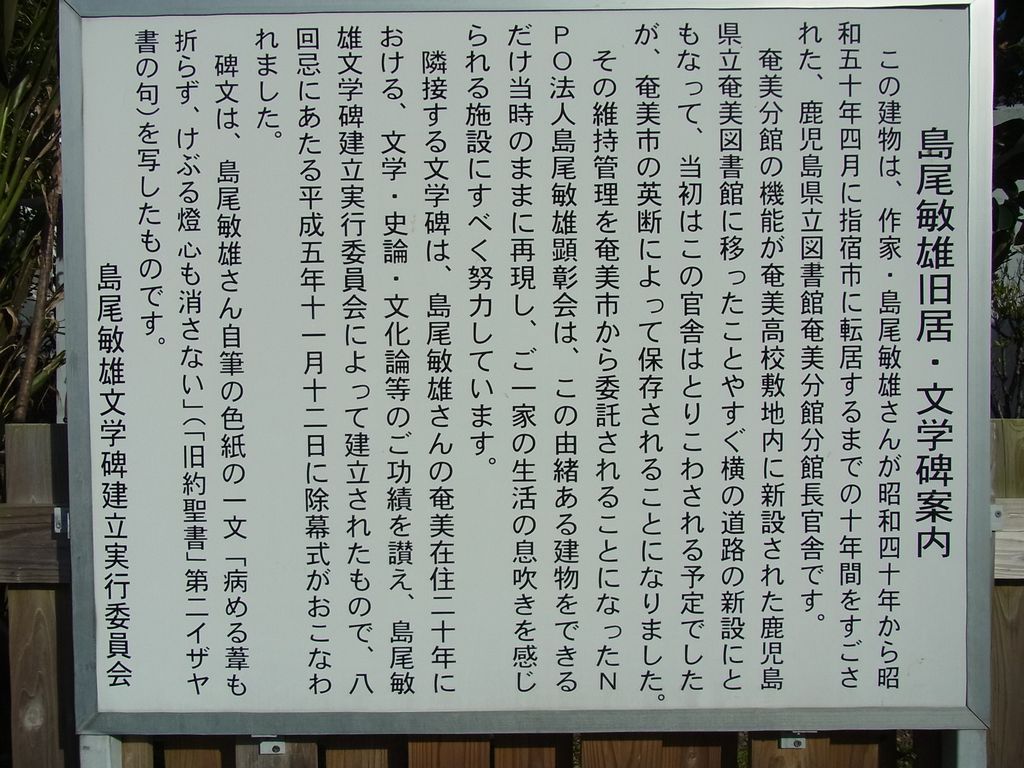 島尾敏雄旧居・文学碑案内
この建物は、作家・島尾敏雄さんが昭和四十年から昭
和五十年四月に指宿市に転居するまでの十年間をすごさ
れた、鹿児島県立図書館奄美分館分館長官舎です。
奄美分館の機能が奄美高校敷地内に新設された鹿児島
県立奄美図書館に移ったことやすぐ横の道路の新設にと
もなって、当初はこの官舎はとりこわされる予定でした
が、奄美市の英断によって保存されることになりました。
その維持管理を奄美市から委託されることになったN
PO法人島尾敏雄顕彰会は、この由緒ある建物をできる
だけ当時のままに再現し、ご一家の生活の息吹きを感じ
られる施設にすべく努力しています。
隣接する文学碑は、島尾敏雄さんの奄美在住二十年に
おける、文学・史論・文化論等のご功績を讃え、島尾敏
雄文学碑建立実行委員会によって建立されたもので、八
回忌にあたる平成五年十一月十二日に除幕式がおこなわ
れました。
碑文は、島尾敏雄さん自筆の色紙の一文「病める葦も
折らず、けぶる燈心も消さない」(「旧約聖書」第二イザヤ
書の句)を写したものです。
島尾敏雄文学碑建立実行委員会